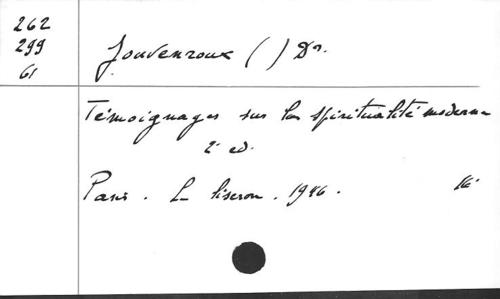 262
299
61
Jouvenroux ( ) Dr.
Témoignages sur la spiritualité moderne
2e ed.
Paris. Le liseron. 1946. 16°